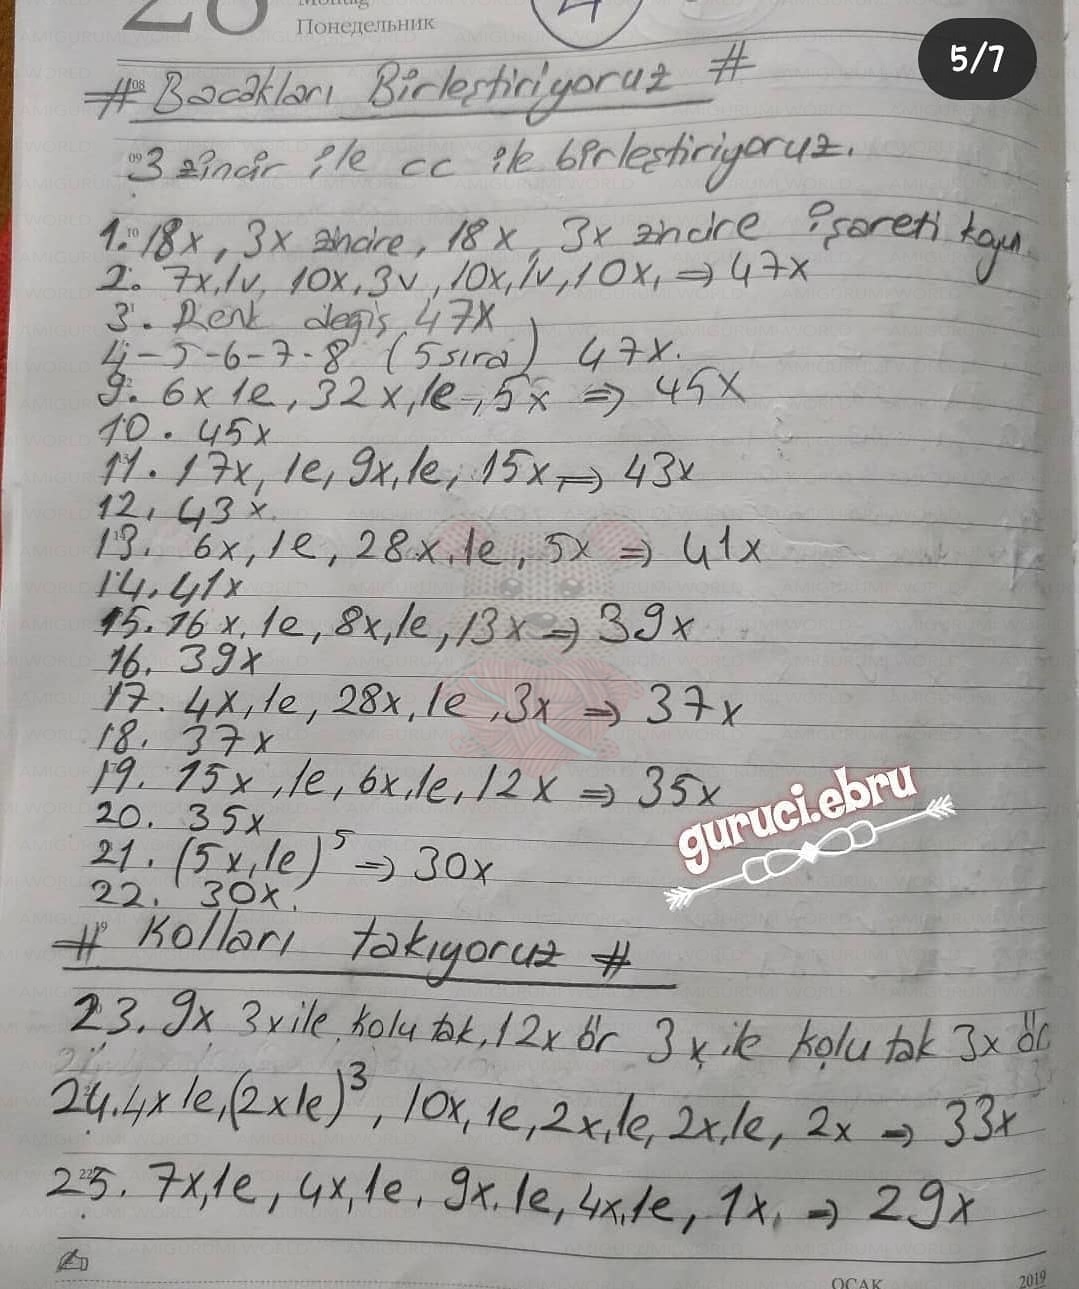 28 Montag
Понедельник
4
5/7
# Bacakları Birleştiriyoruz #
3 zincir ile cc ile birleştiriyoruz.
1. 18x, 3x zincire, 18x, 3x zincire işareti koyun.
2. 7x,1v, 10x,3v, 10x,1v,10x, ⇒ 47x
3. Renk değiş 47x
4-5-6-7-8 (5 sıra) 47x.
9. 6x 1e, 32x,1e, 5x ⇒ 45x
10. 45x
11. 17x, 1e, 9x,1e, 15x ⇒ 43x
12. 43x
13. 6x,1e, 28x,1e, 5x ⇒ 41x
14. 41x
15. 16x,1e, 8x,1e, 13x ⇒ 39x
16. 39x
17. 4x,1e, 28x,1e, 3x ⇒ 37x
18. 37x
19. 15x,1e, 6x,1e, 12x ⇒ 35x
20. 35x
21. (5x,1e)⁵ ⇒ 30x
22. 30x.
guruci.ebru
# Kolları takıyoruz #
23. 9x 3x ile kolu tak, 12x ör 3x ile kolu tak 3x ör
24. 4x 1e,(2x1e)³, 10x, 1e, 2x,1e, 2x,1e, 2x ⇒ 33x
25. 7x,1e, 4x,1e, 9x,1e, 4x,1e, 1x, ⇒ 29x
OCAK 2019